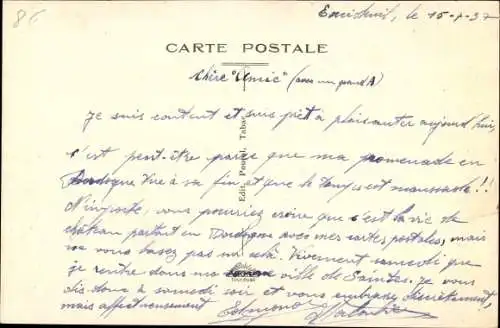 86
Excideuil, le 15-7-37
CARTE POSTALE
Chère "Amie" (avec un grand A)
Je suis content et suis prêt à plaisanter aujourd'hui
c'est peut-être parce que ma promenade en
Dordogne tire à sa fin et que le temps est maussade!!
N'importe, vous pourriez croire que c'est la vie de
château partout en Dordogne avec mes cartes postales, mais
ne vous basez pas sur celà. Vivement samedi que
je rentre dans ma ville de Saintes. Je vous
dis donc à samedi soir et vous embrasse discrètement,
mais affectueusement Edmond
Edit. Peupel, Tabac